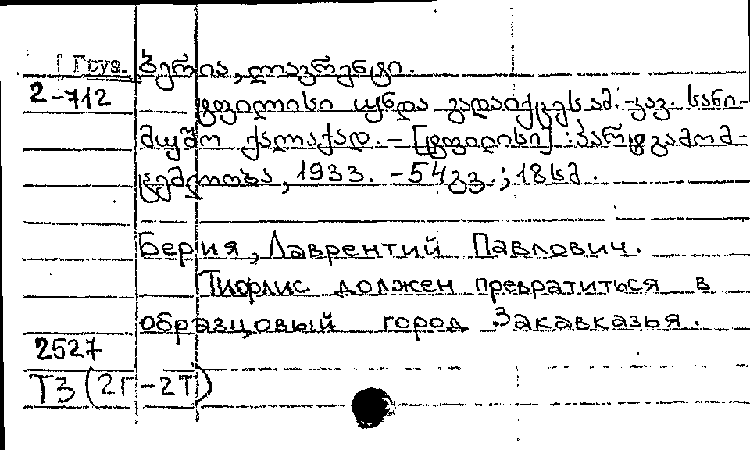 Груз. ბერია, ლავრენტი.
2-712 ტფილისი უნდა გადაიქცეს ამ.-კავ. სანი-
მუშო ქალაქად. - [ტფილისი] : პარტგამომ-
ცემლობა, 1933. - 54 გვ. ; 18 სმ.
Берия, Лаврентий Павлович.
Тифлис должен превратиться в
образцовый город Закавказья.
2527
ТЗ (2Г-2Т)